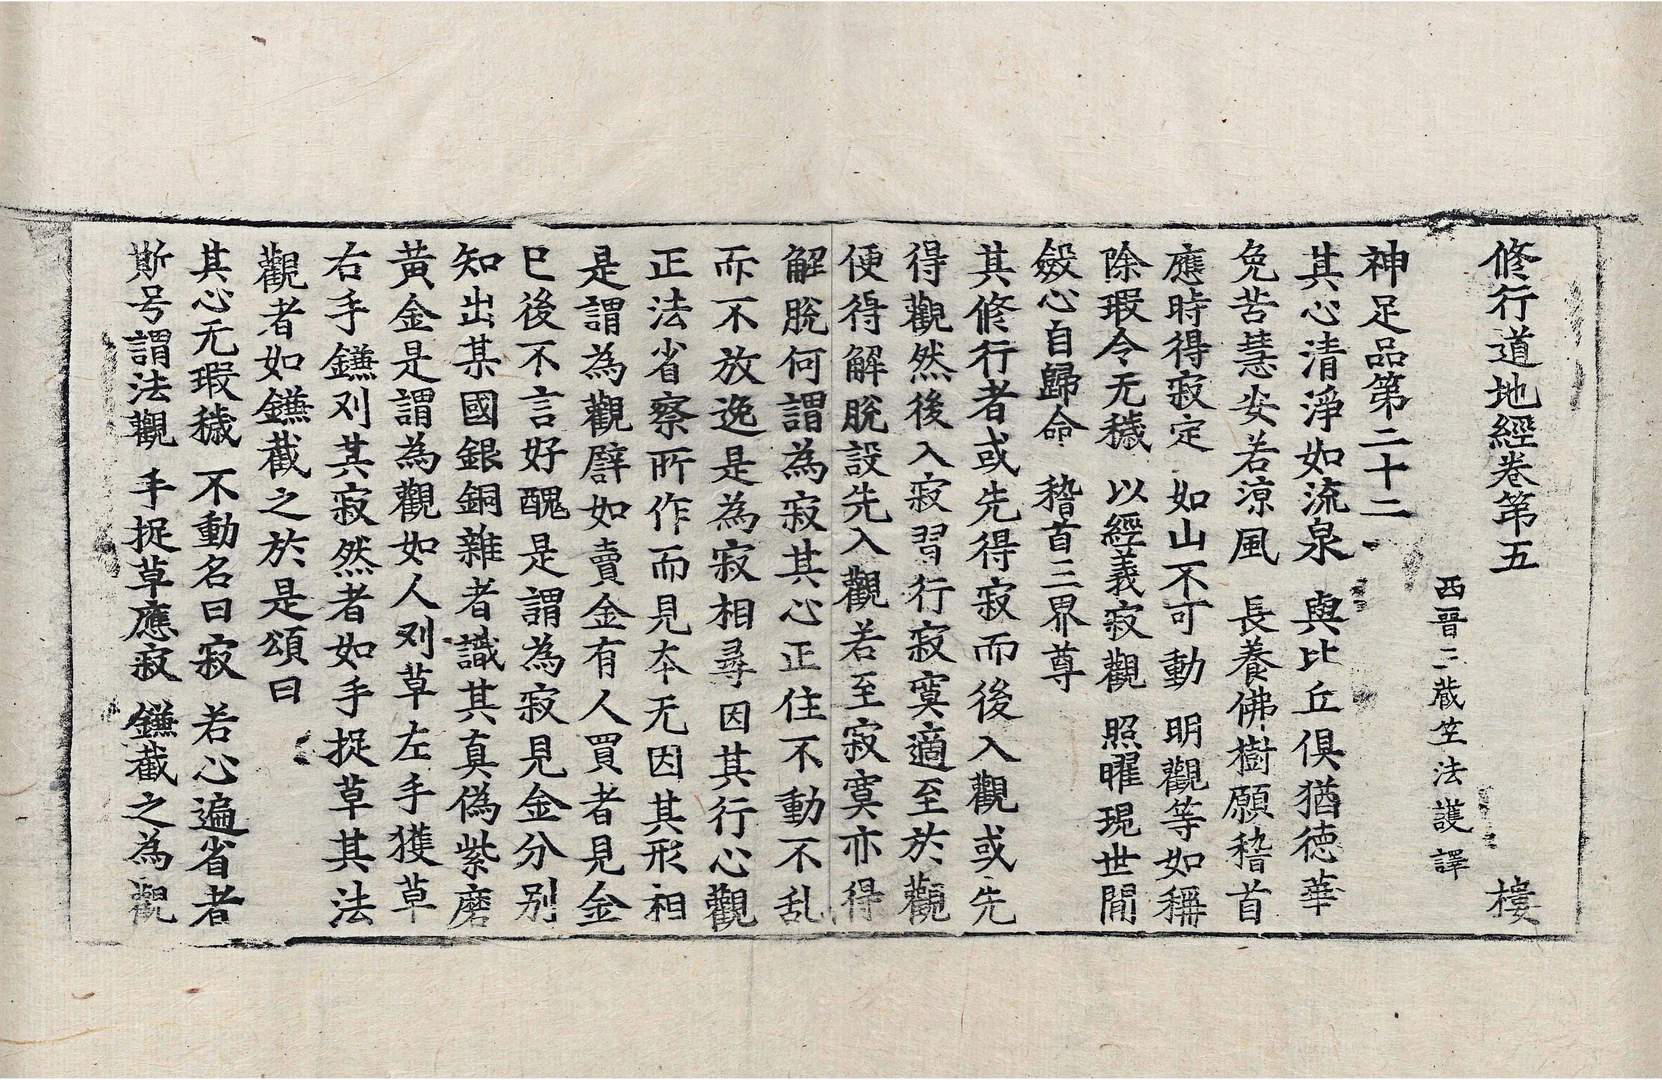 修行道地經卷第五 樓
西晉三藏竺法護譯
神足品第二十二
其心清淨如流泉 與比丘俱猶德華
免苦慧安若涼風 長養佛樹願稽首
應時得寂定 如山不可動 明觀等如稱
除瑕令无穢 以經義寂觀 照曜現世間
斂心自歸命 稽首三界尊
其修行者或先得寂而後入觀或先
得觀然後入寂習行寂寞適至於觀
便得解脫設先入觀若至寂寞亦得
解脫何謂為寂其心正住不動不乱
而不放逸是為寂相尋因其行心觀
正法省察所作而見本无因其形相
是謂為觀譬如賣金有人買者見金
已後不言好醜是謂為寂見金分别
知出某國銀銅雜者識其真偽紫磨
黃金是謂為觀如人刈草左手獲草
右手鎌刈其寂然者如手捉草其法
觀者如鎌截之於是頌曰
其心无瑕穢 不動名曰寂 若心遍省者
斯号謂法觀 手捉草應寂 鎌截之為觀